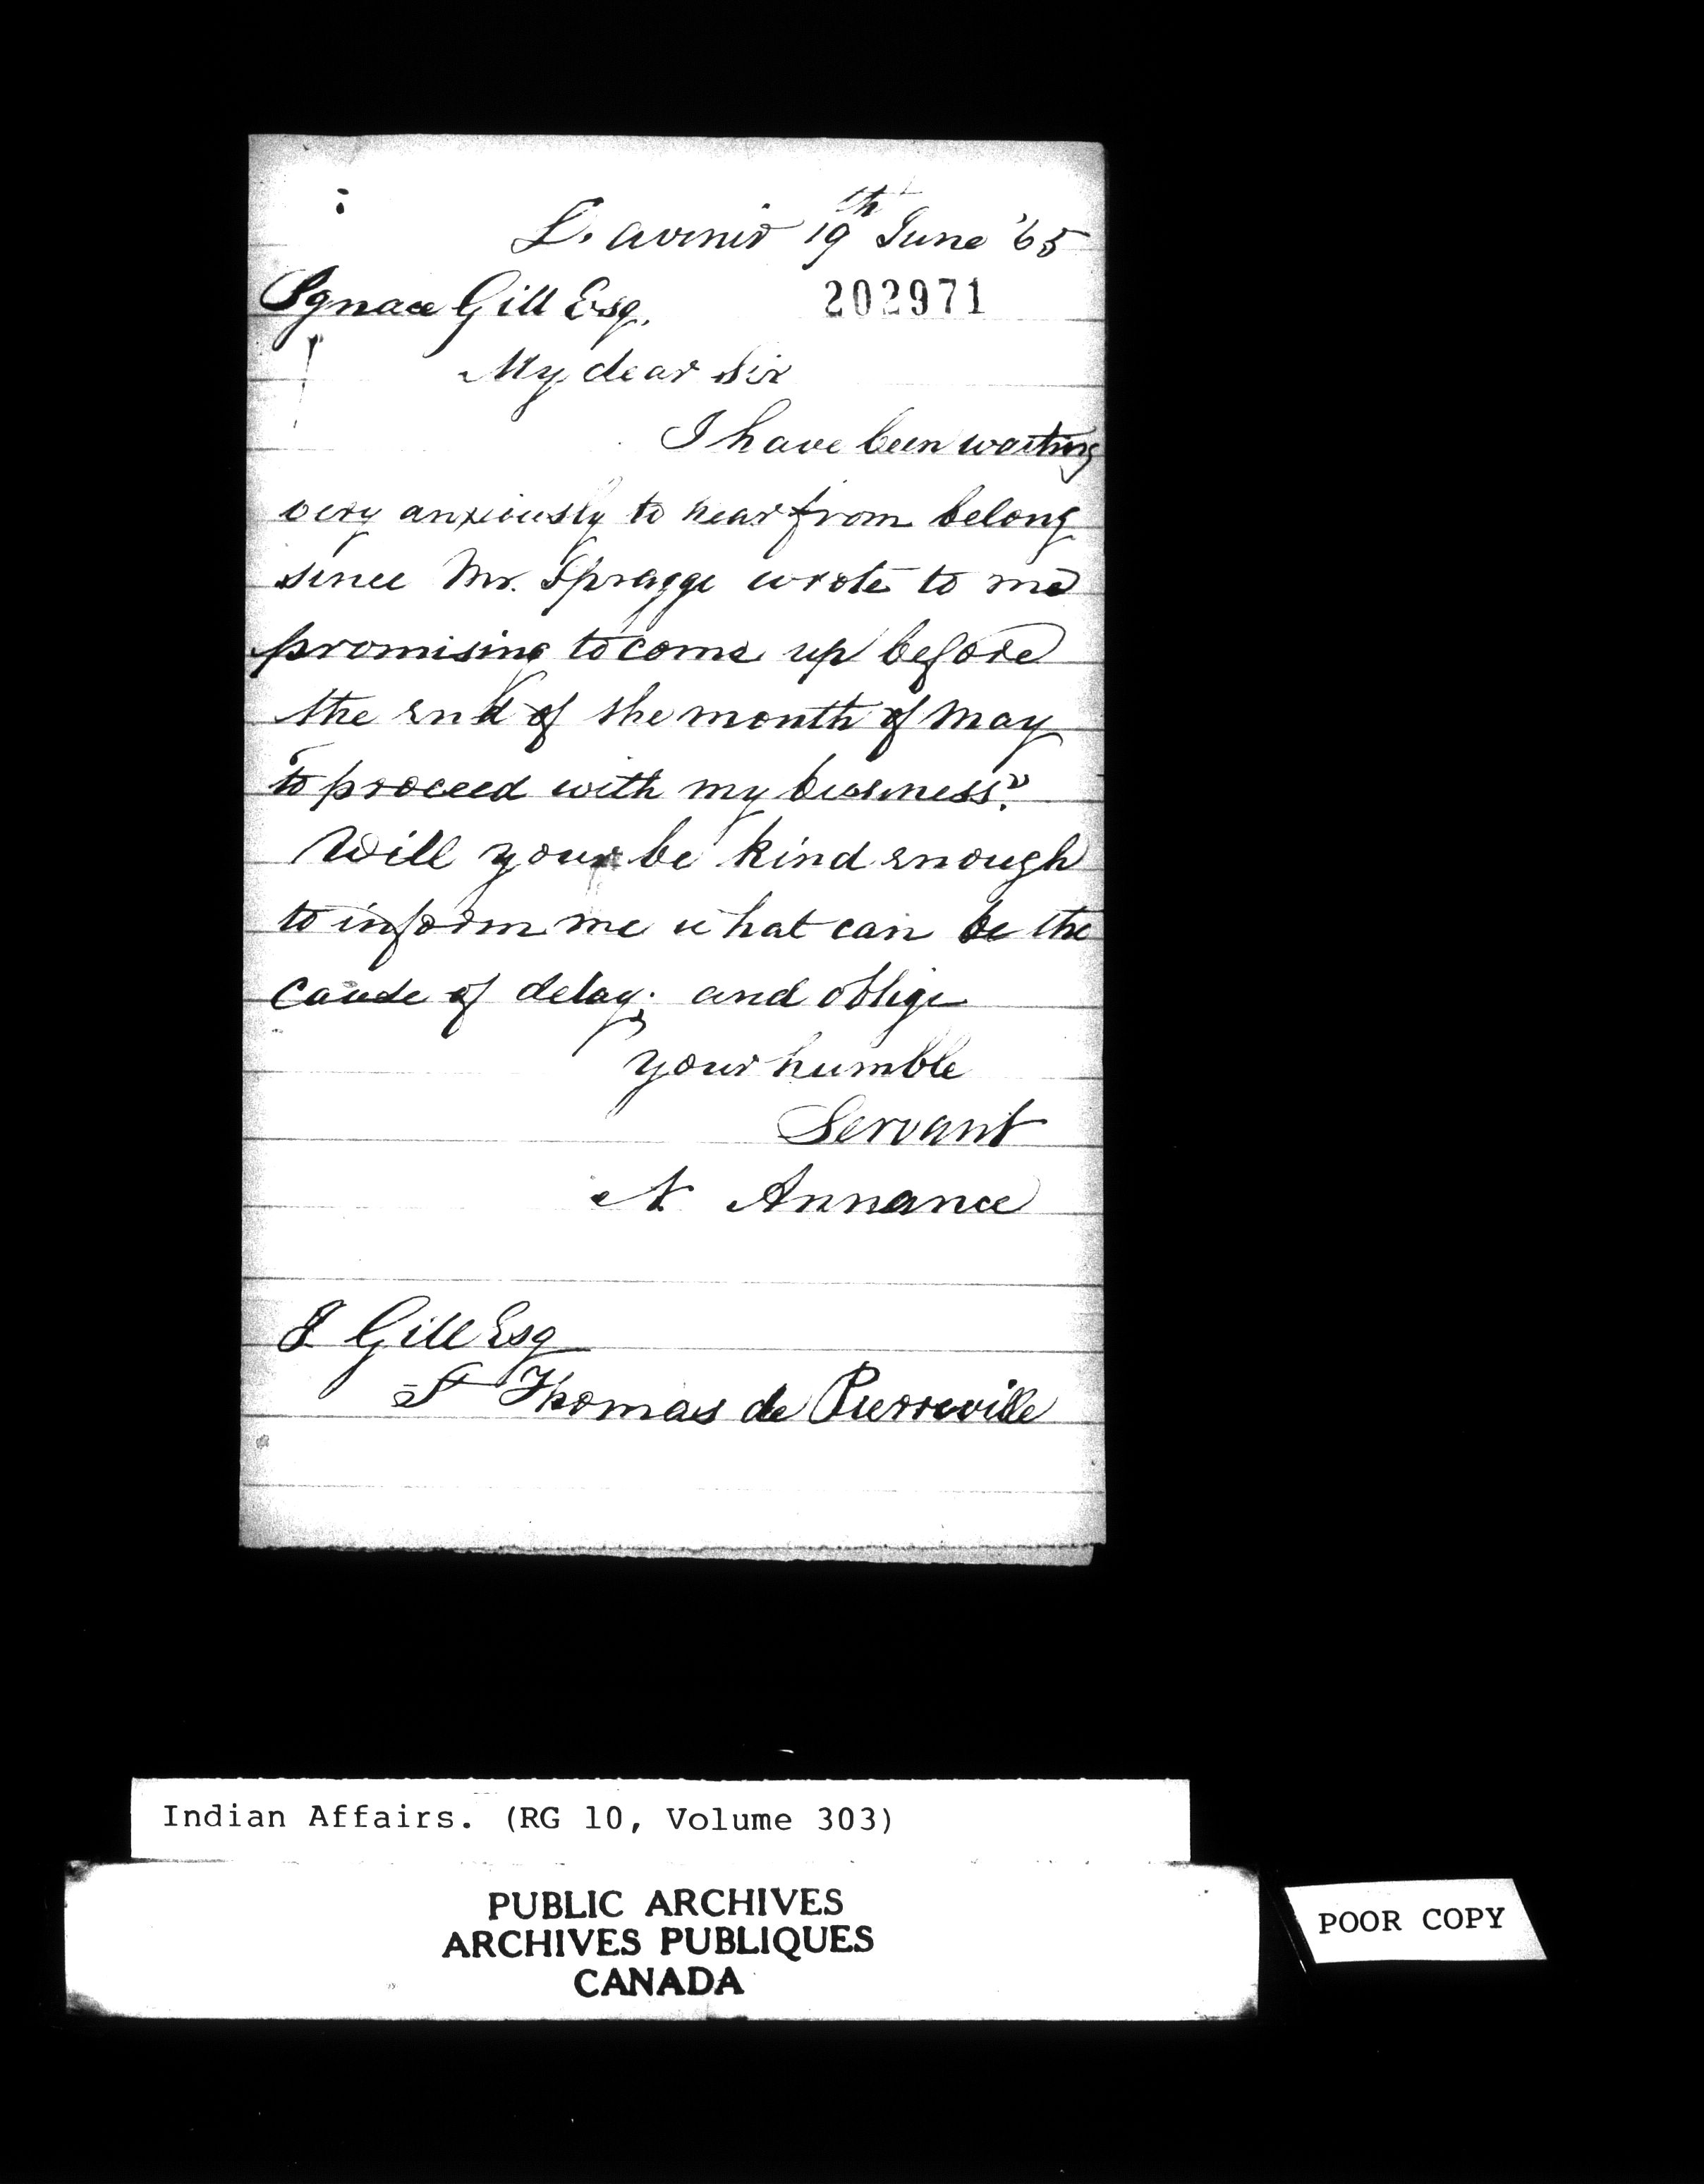 L. avenir 19th June '65
Ignace Gill Esq. 202971
My dear Sir
I have been waiting
very anxiously to hear from belong
since Mr. Spragge wrote to me
promising to come up before
the end of the month of May
to proceed with my business?
Will your be kind enough
to inform me what can be the
cause of delay; and oblige
your humble
Servant
N Annance
I Gill Esq
St Thomas de Pierreville
Indian Affairs. (RG 10, Volume 303)
PUBLIC ARCHIVES
ARCHIVES PUBLIQUES
CANADA
POOR COPY